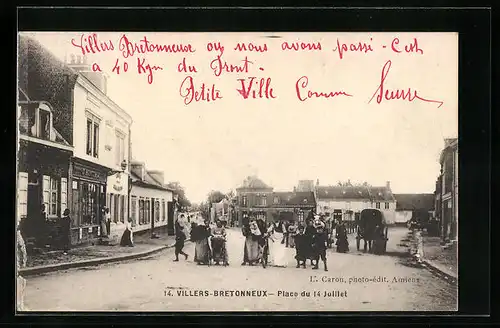 Villers Bretonneux ou nous avons passé - C'est
a 40 Kgm du Front -
Petite Ville Comme Seurre
L. Caron, photo-édit, Amiens
14. VILLERS-BRETONNEUX - Place du 14 Juillet